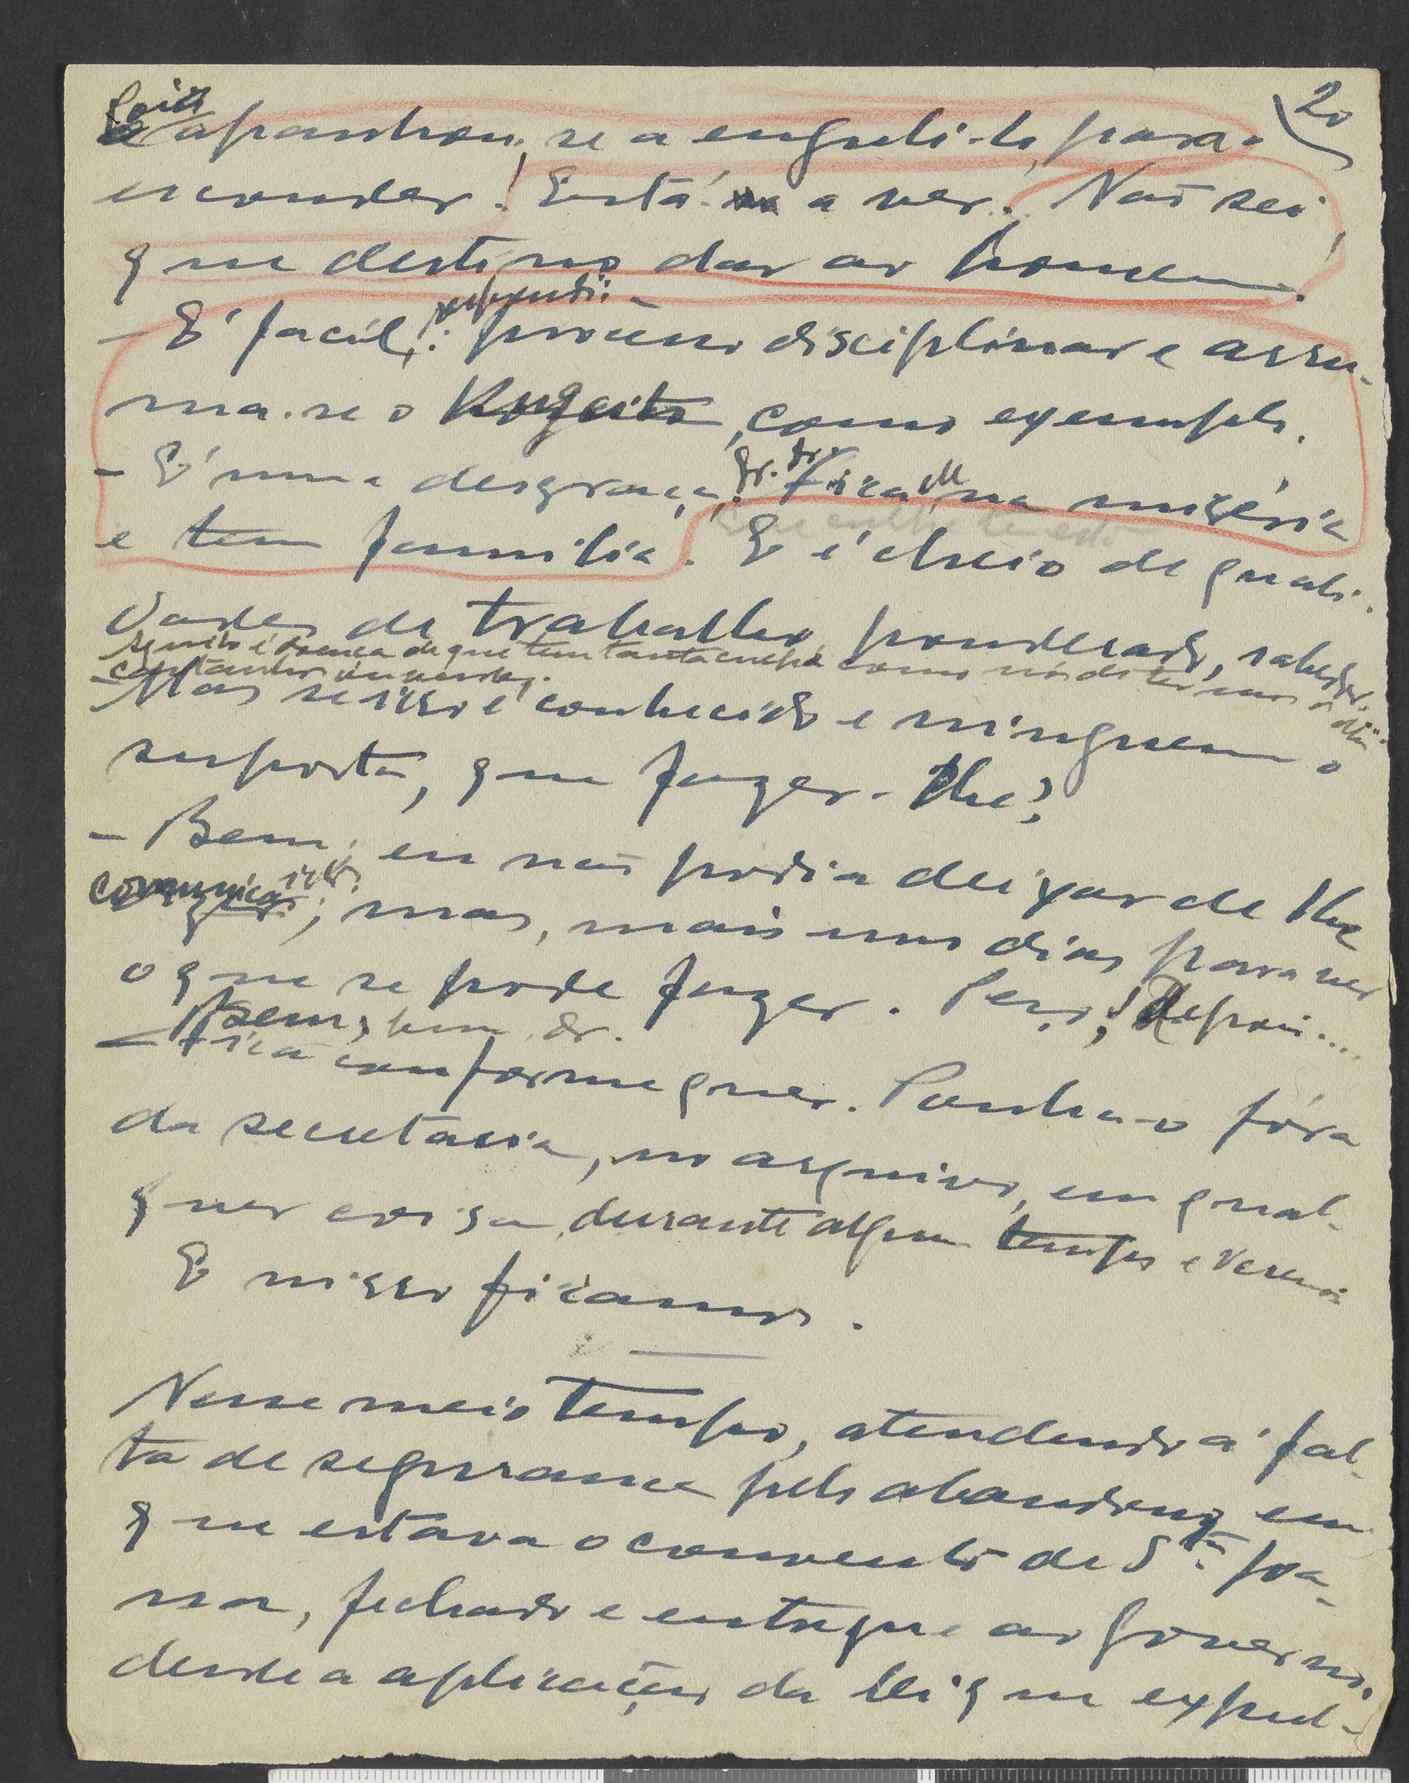 20
apanhou-se a enguli-lo, para o
esconder! Está a ver. Não sei
que destino dar ao homem.
respondi:
- É facil: processo disciplinar e arru-
ma-se o sujeito, como exemplo.
- É uma desgraça, sr. dr. Fica na miséria
e tem familia. E é cheio de quali-
dades de trabalho, ponderado, sabedor...
- Mas se isso é conhecido e ninguem o
suporta, que fazer-lhe?
- Bem, eu não podia deixar de lhe
comunicar isto; mas, mais uns dias para ver
o que se pode fazer. Depois....
- Bem, bem, dr.
Fica conforme quer. Ponha-o fóra
da secretaria, no arquivo, em qual-
quer coisa, durante algum tempo e veremos
E nisso ficamos.
Nesse meio tempo, atendendo á fal-
ta de segurança pelo abandono em
que estava o convento de Sta. Joa-
na, fechado e entregue ao Governo,
desde a aplicação da lei que expul-